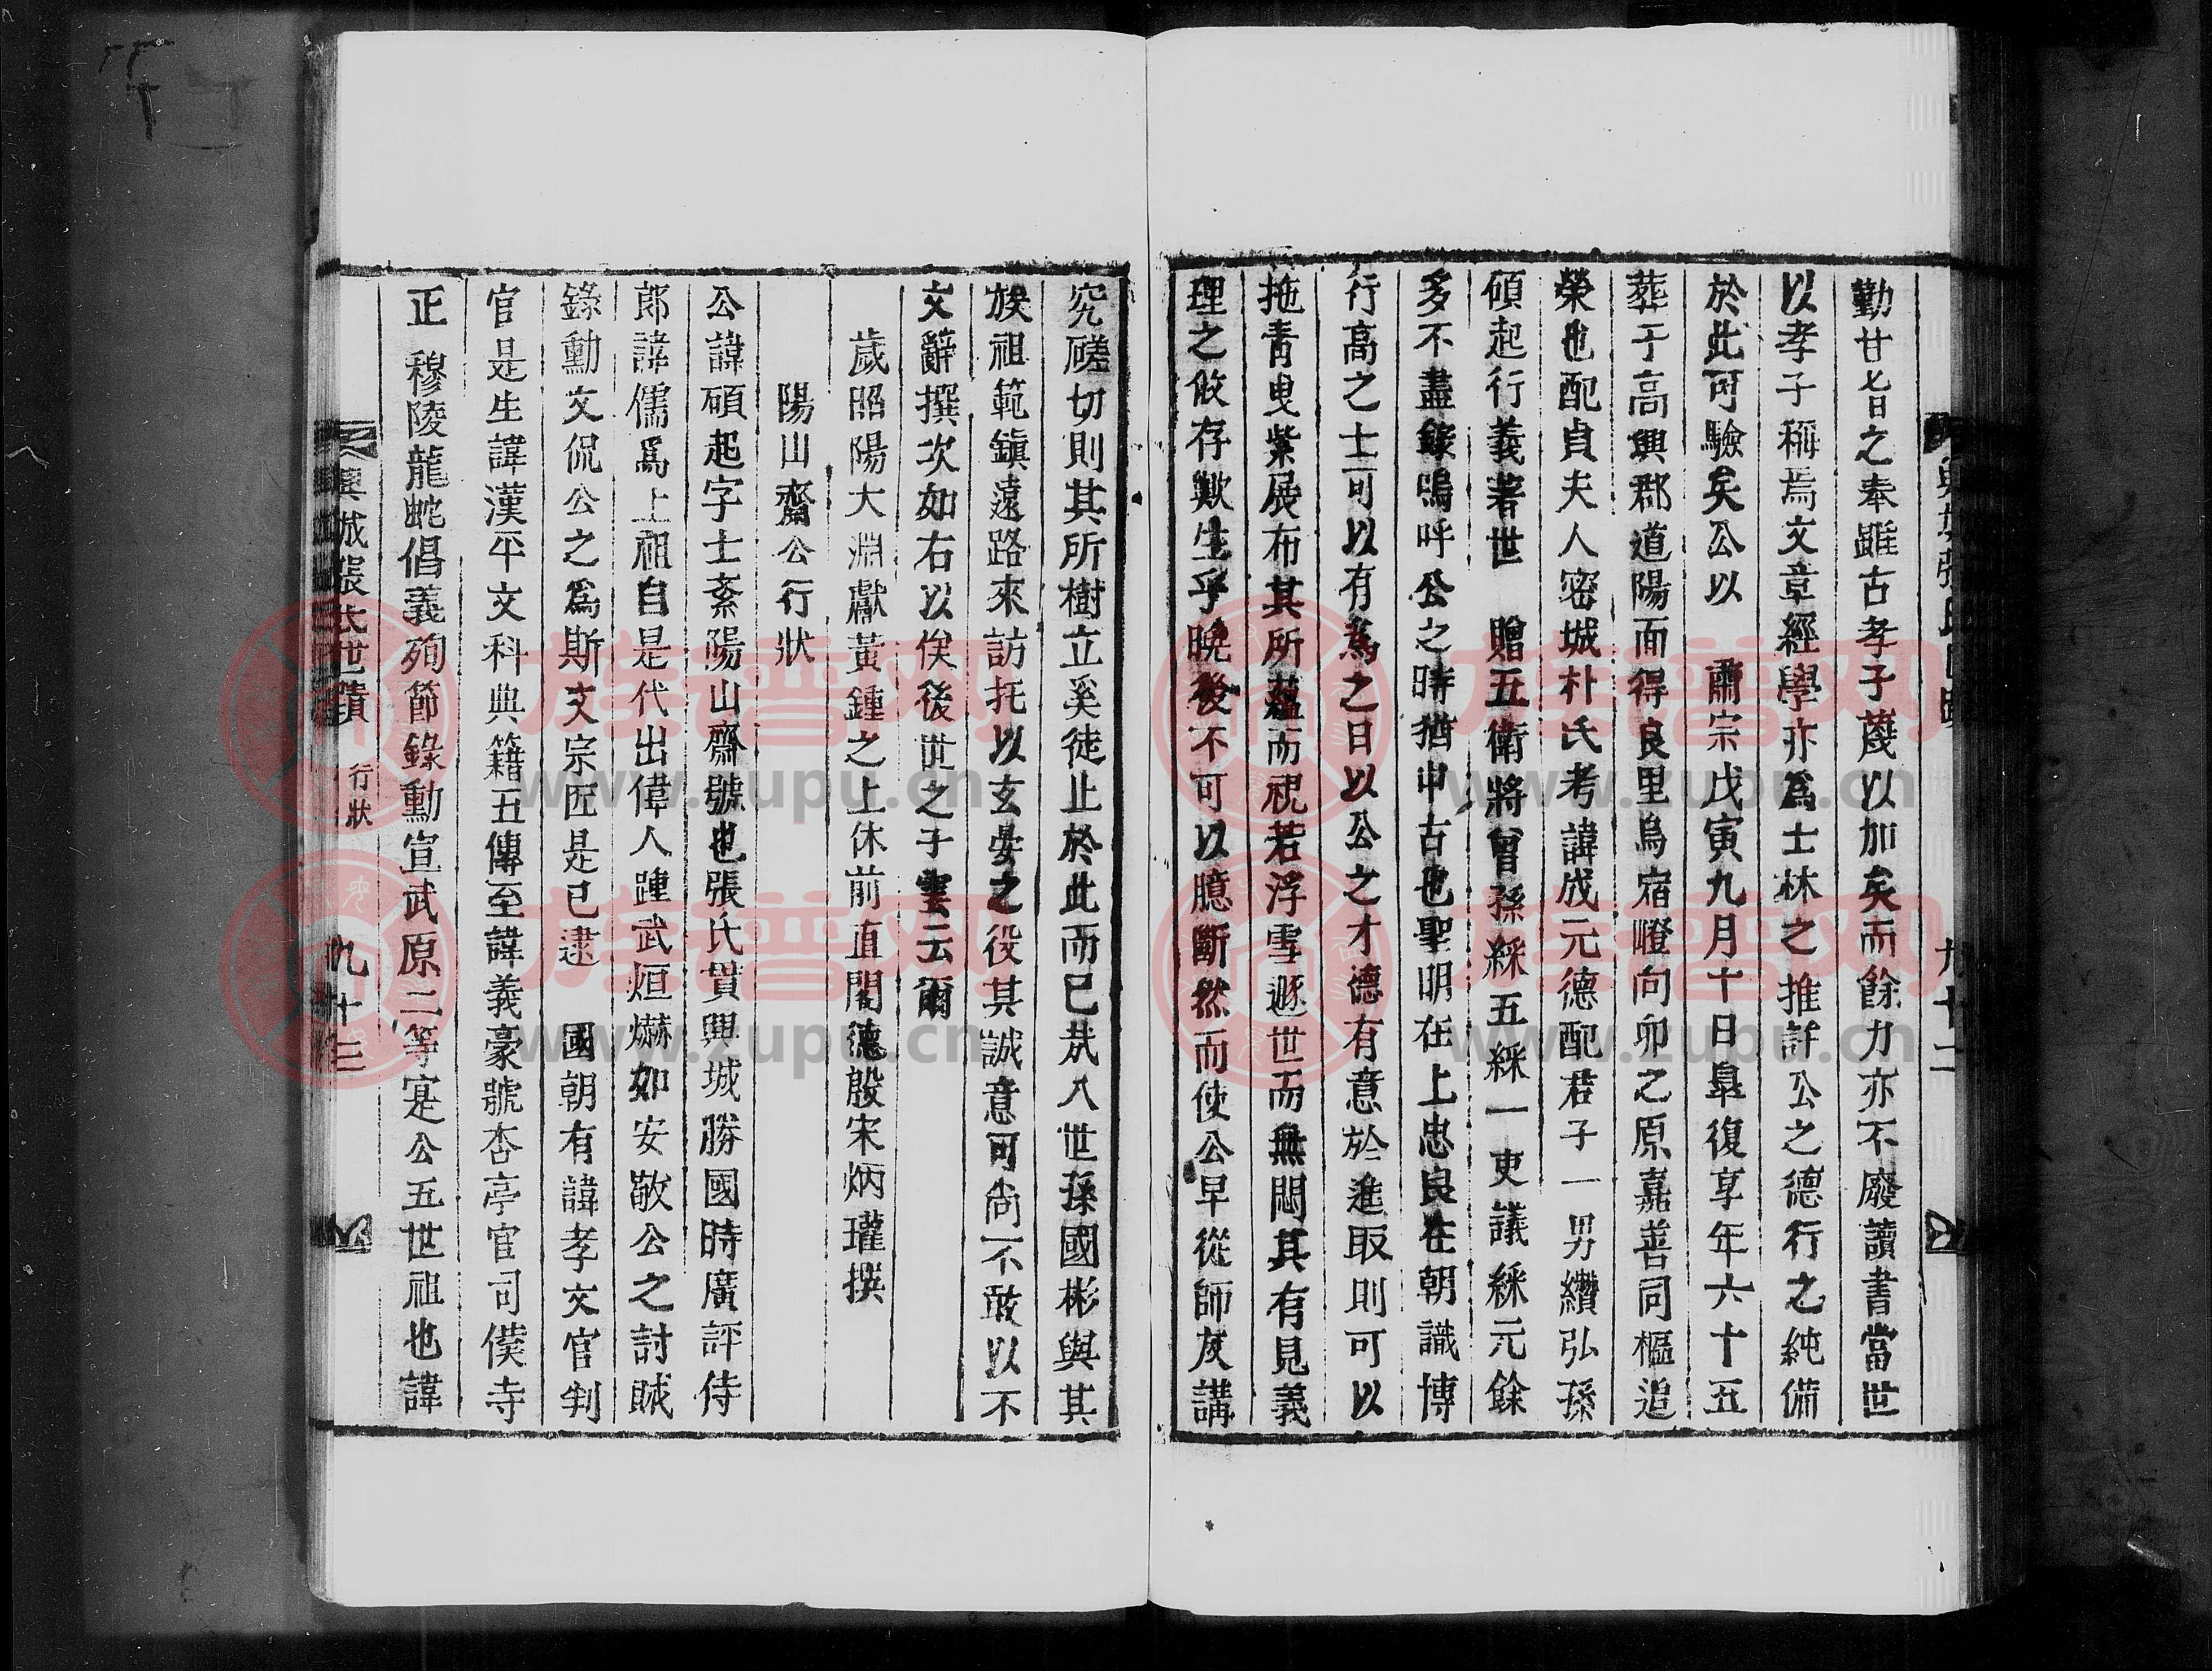 勤廿旨之奉雖古孝子蔑以加矣而餘力亦不廢讀書當世
以孝子稱焉文章經學亦爲士林之推詳公之德行之純備
於此可驗矣公以 肅宗戊寅九月十日皐復享年六十五
葬于高興郡道陽面得良里烏宿嶝向卯之原嘉善同樞追
榮也配貞夫人密城朴氏考諱成元德配君子一男纘弘孫
碩起行義著世 贈五衛將曾孫綵五綵一吏議綵元餘
多不盡錄嗚呼公之時猶中古也聖明在上忠良在朝識博
行高之士可以有爲之日以公之才德有意於進取則可以
拖青曳紫展布其所蘊而視若浮雪遯世而無悶其有見義
理之攸存歟生乎晚後不可以臆斷然而使公早從師友講
究磋切則其所樹立奚徒止於此而已㢤八世孫國彬與其
族祖範鎭遠路來訪托以玄晏之役其誠意可尙不敢以不
文辭撰次如右以俟後世之子雲云爾
歲昭陽大淵獻黃鍾之上休前直閣德殷宋炳瓘撰
陽山齋公行狀
公諱碩起字士紊陽山齋號也張氏貫興城勝國時廣評侍
郎諱儒爲上祖自是代出偉人踵武烜爀如安敵公之討賊
錄勳文侃公之爲斯文宗匠是已逮 國朝有諱孝文官判
官是生諱漢平文科典籍五傳至諱義豪號杏亭官司僕寺
正 穆陵龍蛇倡義殉節錄勳宣武原二等寔公五世祖也諱
興城張氏世蹟 行狀 九十三
九十二